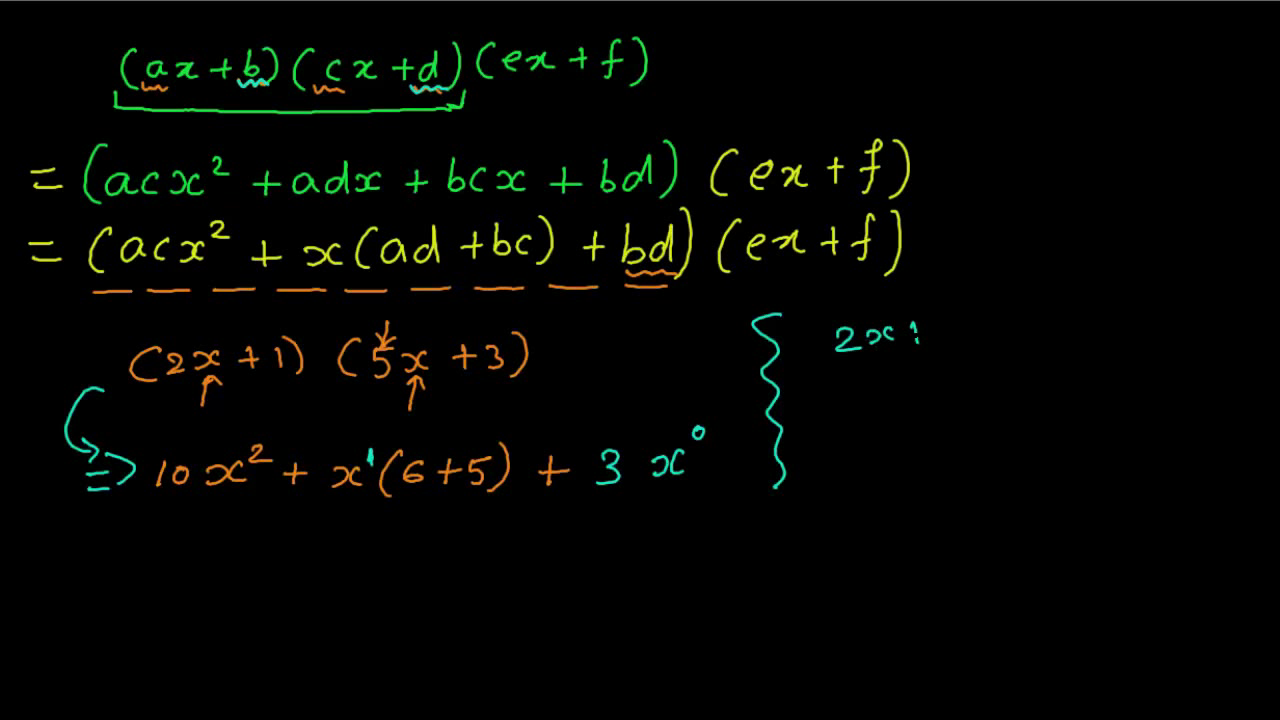 (ax + b) (cx + d) (ex + f)
= (acx² + adx + bcx + bd) (ex + f)
= (acx² + x(ad + bc) + bd) (ex + f)
(2x + 1) (5x + 3)
2x
=> 10x² + x¹(6+5) + 3x⁰